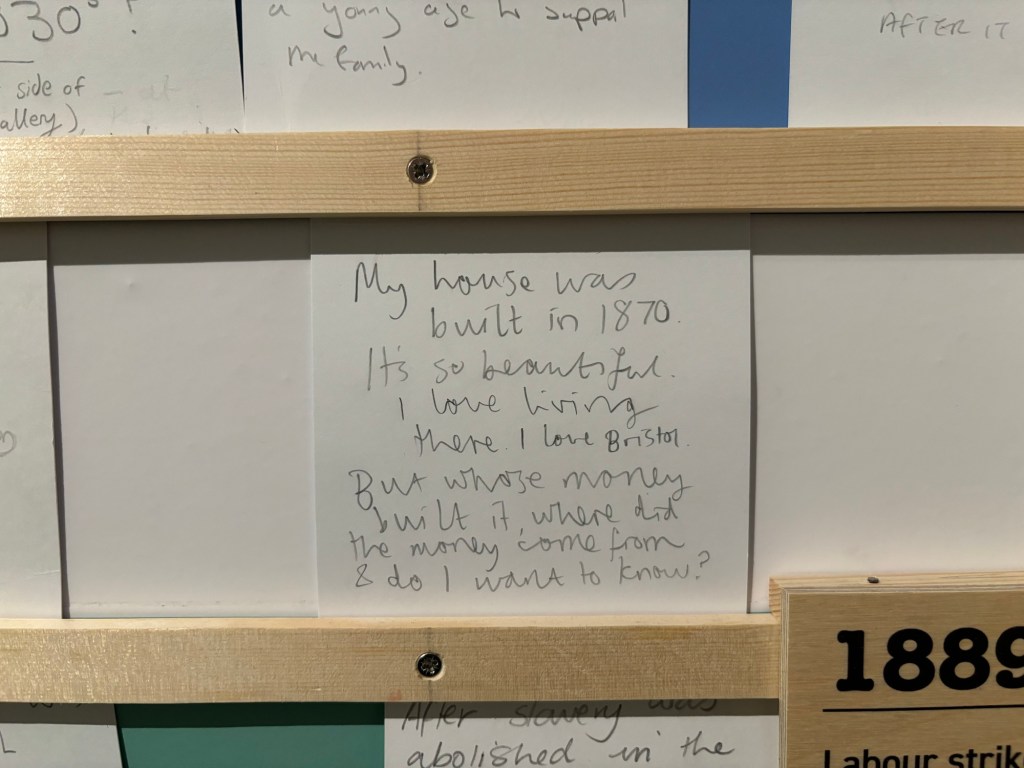 030° ?
side of
allery)
a young age to suppot
the family.
AFTER IT
My house was
built in 1870.
It's so beautiful.
I love living
there. I love Bristol.
But whose money
built it, where did
the money come from
& do I want to know?
1889
Labour strik
After slavery was
abolished in the
L